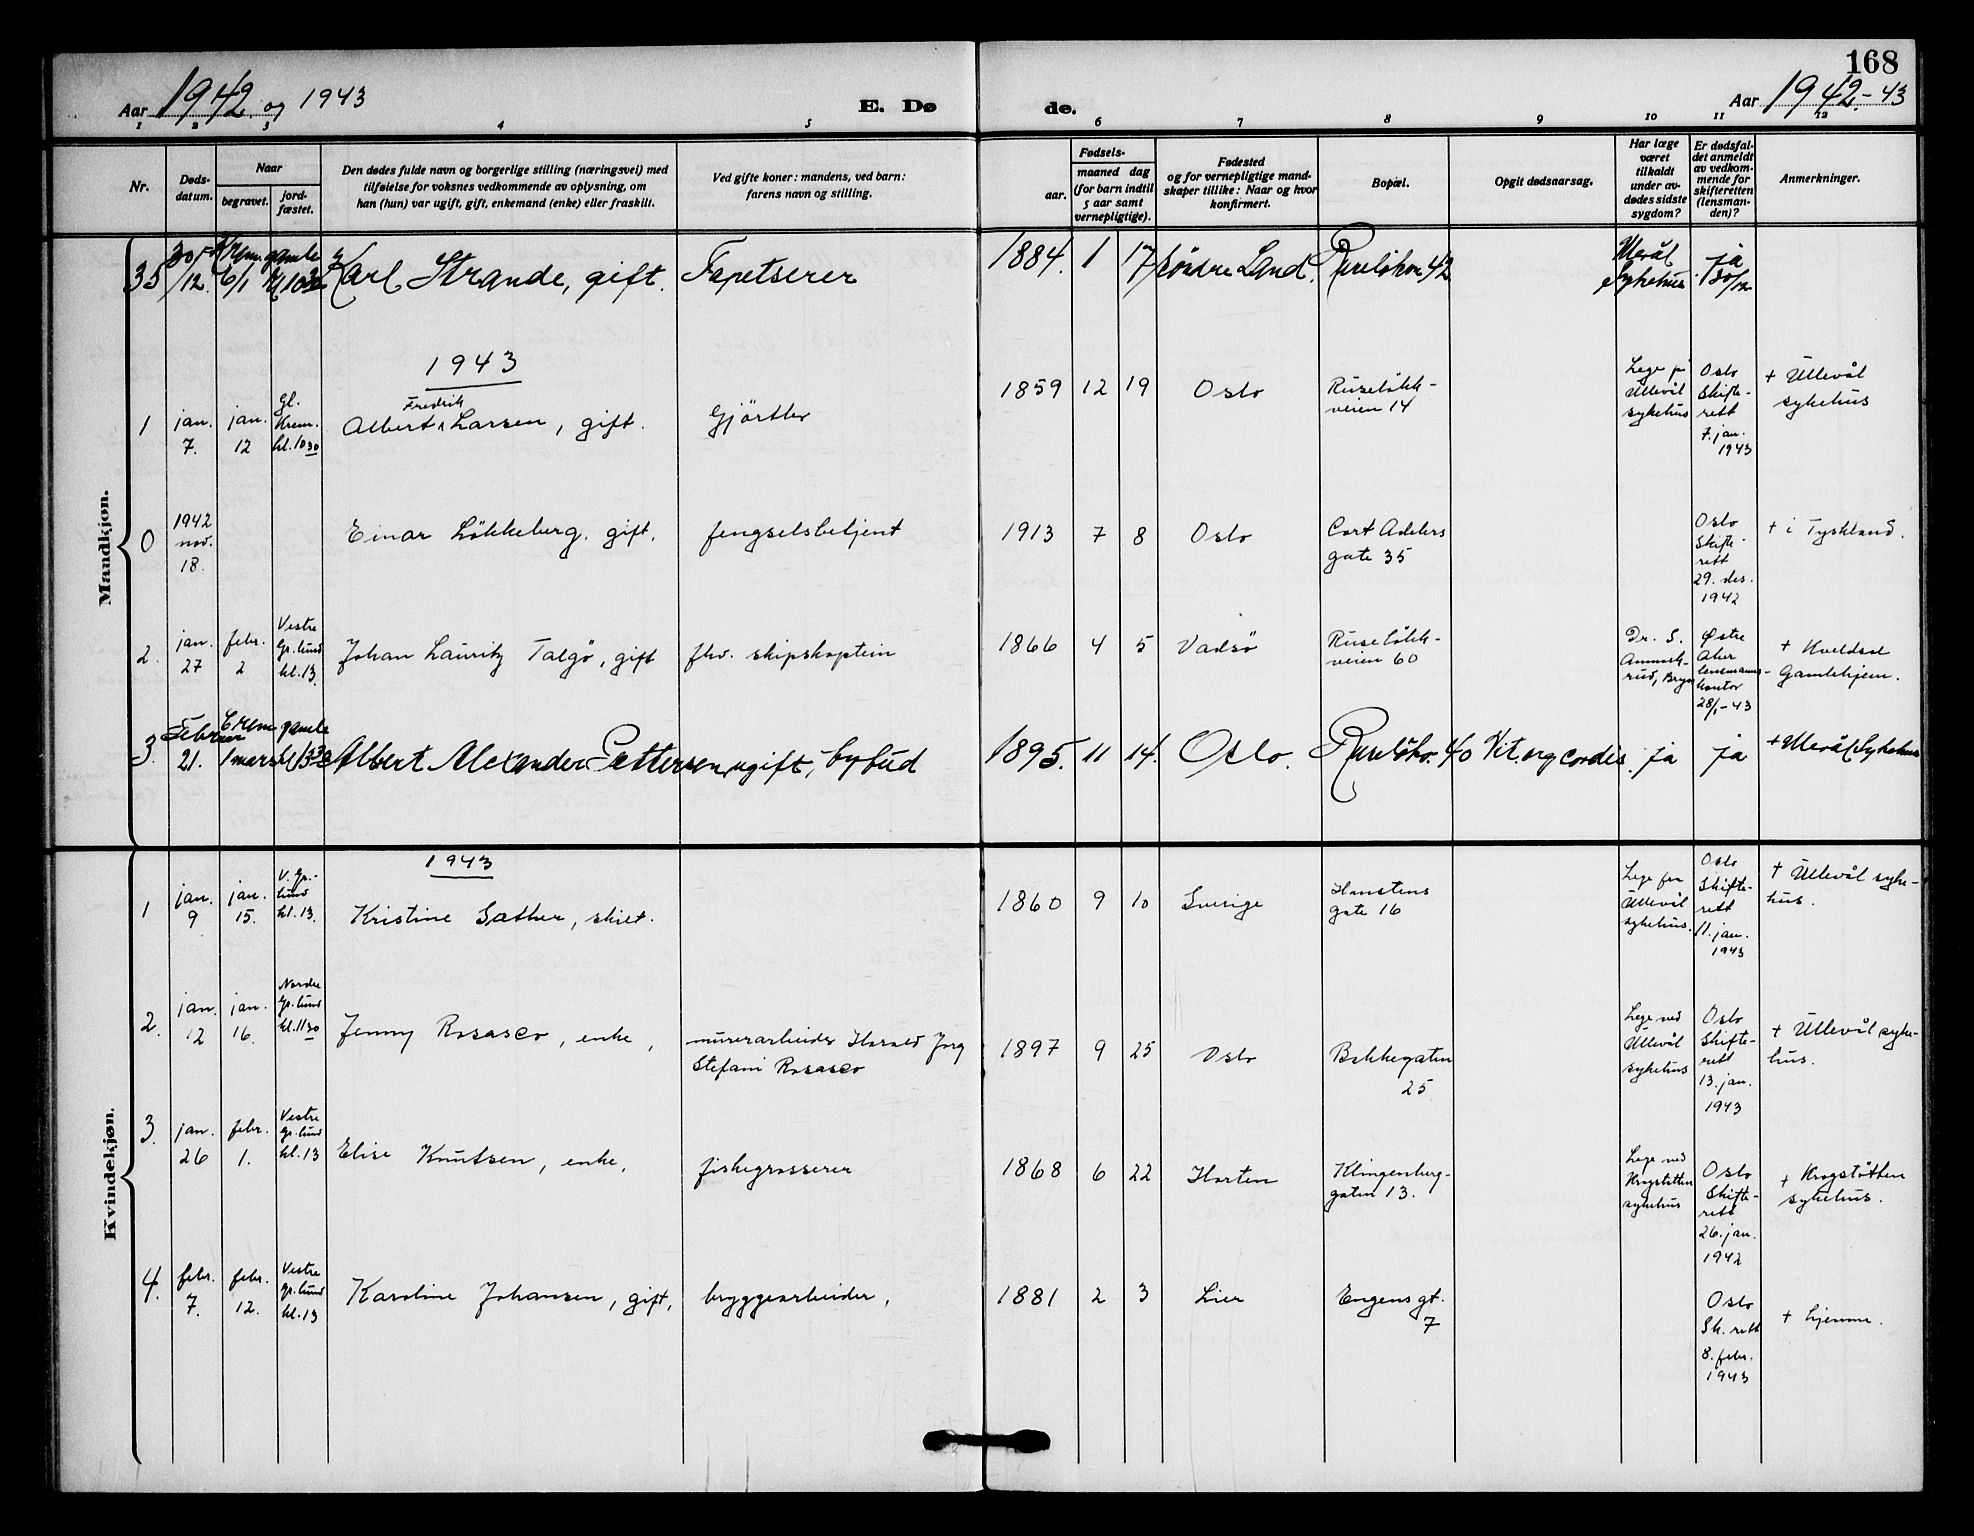 168
Aar 1942 og 1943 E. Dø de. Aar 1942-43
1 2 3 4 5 6 7 8 9 10 11 12
Nr.
Døds-
datum.
Naar
begravet.
jord-
fæstet.
Den dødes fulde navn og borgerlige stilling (næringsvei) med
tilføielse for voksnes vedkommende av oplysning, om
han (hun) var ugift, gift, enkemand (enke) eller fraskilt.
Ved gifte koner: mandens, ved barn:
farens navn og stilling.
Fødsels-
aar.
maaned dag
(for barn indtil
5 aar samt
vernepligtige).
Fødested
og for vernepligtige mand-
skaper tillike: Naar og hvor
konfirmert.
Bopæl.
Opgit dødsaarsag.
Har læge
været
tilkaldt
under av-
dødes sidste
sygdom?
Er dødsfal-
det anmeldt
av vedkom-
mende for
skifteretten
(lensman-
den)?
Anmerkninger.
Mandkjøn.
35
/12. 6/1
Karl Strande, gift. Tapetserer
1884. 1 17 Søndre Land. Ruseløkv 42
Ullevål
Sykehus
ja
30/12
1943
1
jan.
7.
jan.
12
gl.
Krem.
kl. 10 30
Fredrik
Albert Larsen, gift.
Gjørtler
1859 12 19 Oslo
Ruseløkk-
veien 14
Lege på
Ullevål
sykehus
Oslo
Skifte-
rett
7. jan.
1943
+ Ullevål
sykehus
0
1942
nov.
18.
Einar Løkkeberg, gift.
fengselsbetjent
1913 7 8 Oslo
Cort Adelers
gate 35
Oslo
Skifte-
rett
29. des.
1942
+ i Tyskland.
2.
jan.
27
febr.
2
Vestre
Gr.lund
kl. 13.
Johan Lauritz Talgø, gift
fhv. skipskaptein
1866 4 5 Vadsø
Ruseløkk-
veien 60
Dr. S.
Ammerk-
rud, Bryn
Østre
Aker
lensmanns-
kontor
28/1-43
+ Kveldsol
Gamlehjem.
3.
Februar
21.
Crem
1 mars
gamle
kl 13 30
Albert Alexander Pettersen, ugift, bybud
1895. 11 14. Oslo. Ruseløkv. 40 Vit. org cordis. ja ja + Ullevål Sykehus
Kvindekjøn.
1943
1
jan.
9
jan.
15.
V. Gr.-
lund
kl. 13.
Kristine Sæther, skilt.
1860 9 10 Sverige
Hanstens
gate 16
Lege fra
Ullevål
sykehus.
Oslo
Skifte-
rett
11. jan.
1943
+ Ullevål syke-
hus.
2.
jan.
12
jan.
16.
Nordre
Gr.lund
kl. 11 30
Jenny Rosasco, enke,
murerarbeider Harald Jørg
Stefani Rosasco
1897 9 25 Oslo
Bakkegaten
25
Lege ved
Ullevål
sykehus
Oslo
Skifte-
rett
13. jan.
1943
+ Ullevål syke-
hus.
3.
jan.
26
febr.
1.
Vestre
Gr.lund
kl. 13
Elise Knutsen, enke,
fiskegrosserer
1868 6 22 Horten
Klingenberg-
gaten 13.
Lege ved
Krogstøtten
sykehus
Oslo
Skifte-
rett
26. jan.
1942
+ Krogstøtten
sykehus.
4.
febr.
7.
febr.
12.
Vestre
gr.lund
kl. 13
Karoline Johansen, gift,
bryggearbeider,
1881 2 3 Lier
Engens gt.
7
Oslo
Sk. rett
8. febr.
1943
+ hjemme.